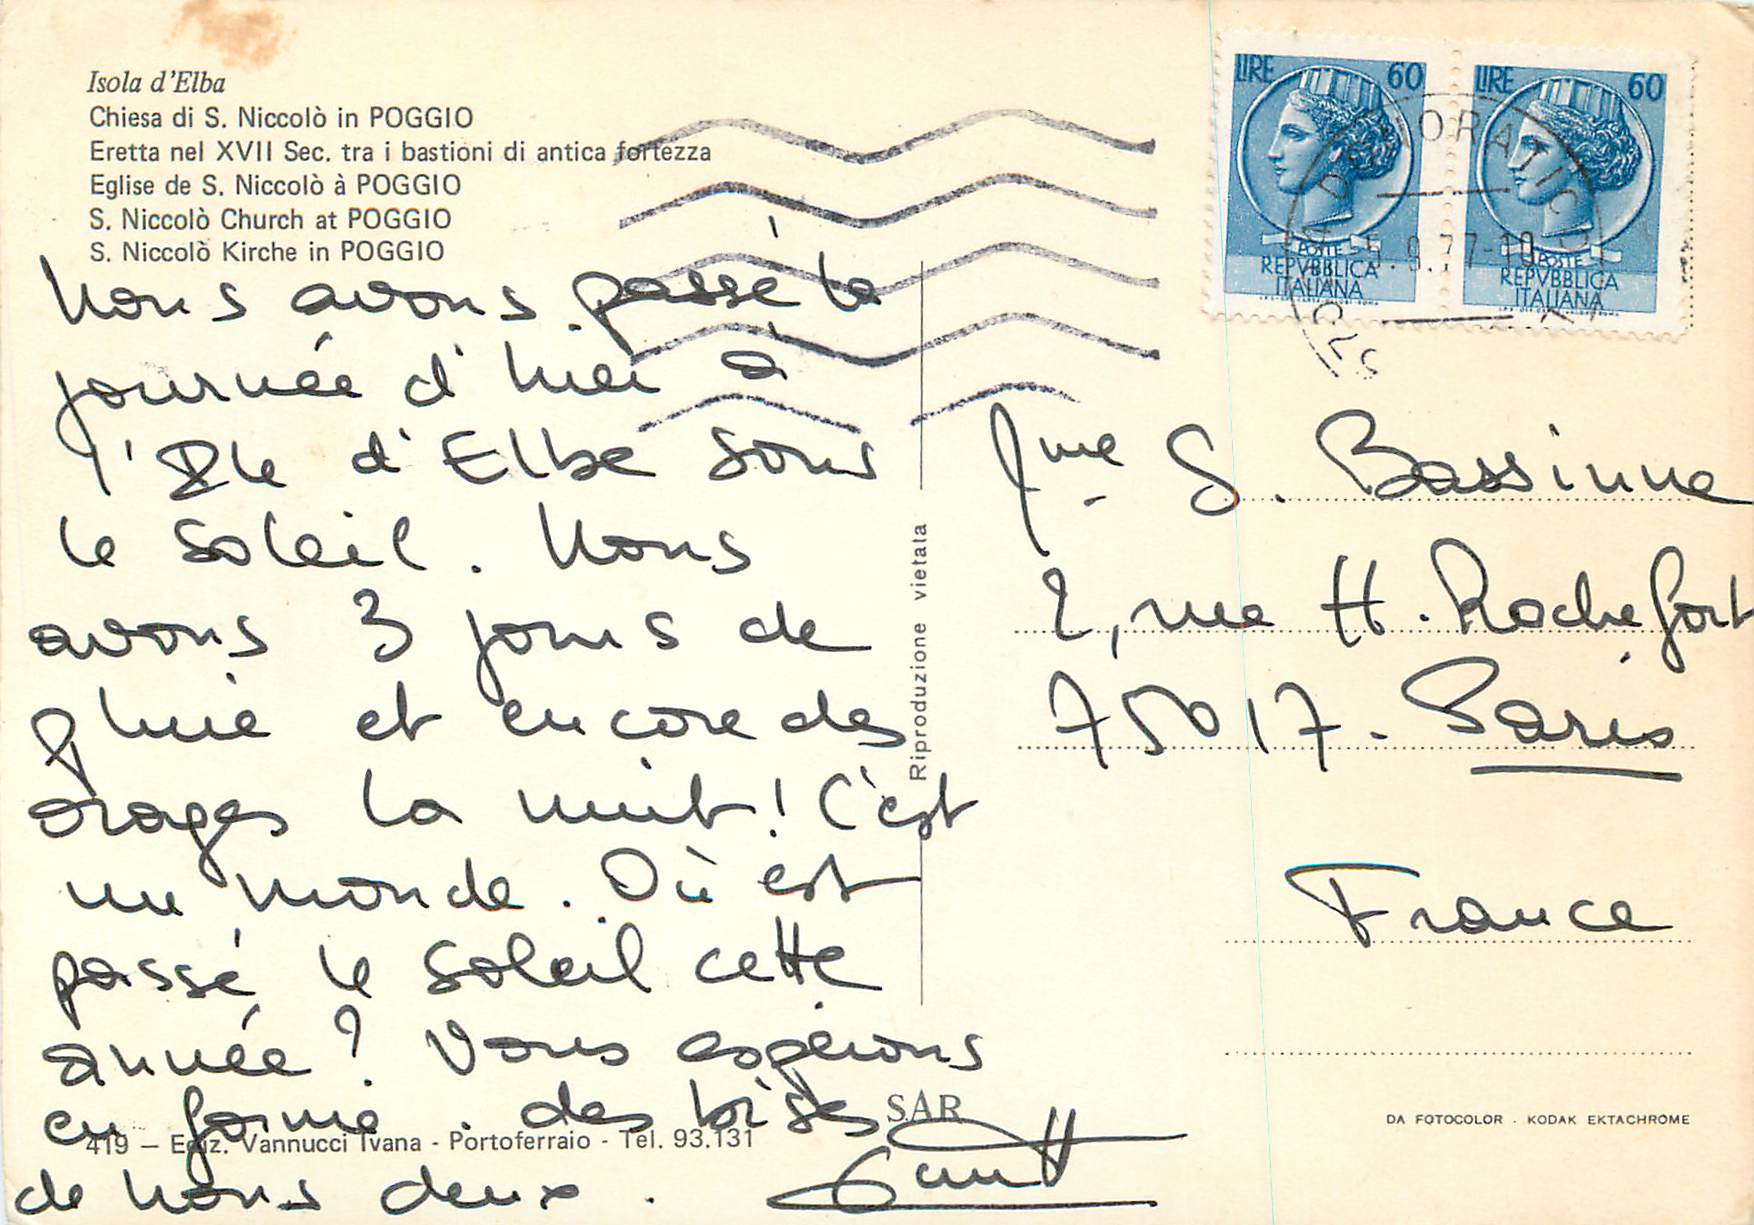 Isola d'Elba
Chiesa di S. Niccolò in POGGIO
Eretta nel XVII Sec. tra i bastioni di antica fortezza
Eglise de S. Niccolò à POGGIO
S. Niccolò Church at POGGIO
S. Niccolò Kirche in POGGIO
Nous avons passé la
journée d'hier à
l'Ile d'Elbe sous
le soleil. Nous
avons 3 jours de
pluie et encore des
orages la nuit! C'est
un monde. Où est
passé le soleil cette
année? Vous espérons
en forme. des bises
de nous deux.
SAR
419 - Ediz. Vannucci Ivana - Portoferraio - Tel. 93.131
Riproduzione vietata
LIRE 60
POSTE
REPVBBLICA
ITALIANA
LIRE 60
POSTE
REPVBBLICA
ITALIANA
5.9.77-10
Mme S. Bassinne
2, rue H. Rochefort
75017. Paris
France
DA FOTOCOLOR . KODAK EKTACHROME